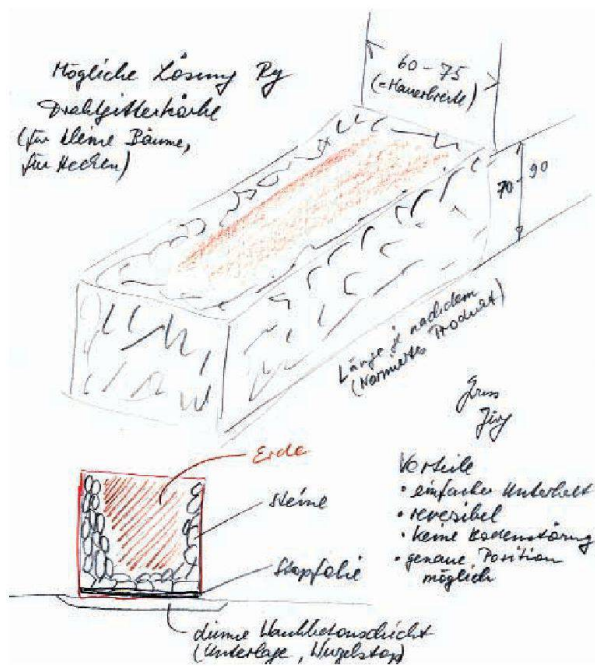 Mögliche Lösung
Drahtgitterkörbe
(für kleine Bäume,
für Hecken)
60 – 75
(= Mauerbreite)
70 - 90
Länge je nachdem
(Normiertes Produkt)
Gruss
Erde
Steine
Stopfolie
dünne Hartbetonschicht
(Unterlage, Wurzelstop)
Vorteile
• einfacher Unterhalt
• reversibel
• keine Bodenstörung
• genaue Position
möglich